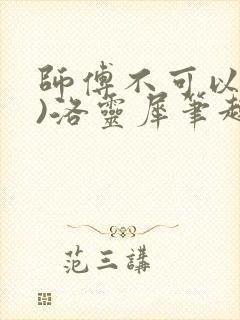 師傅不可以
)洛靈犀筆趣
范三講